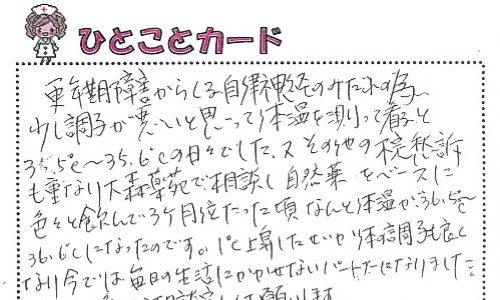 ひとことカード
更年期障害からくる自律神経のみだれの為
少し調子が悪いと思って体温を測って看ると
35.5℃〜35.6℃の日々でした。又その他の
も重なり大森薬苑で相談し自然薬をベースに
色々と飲んで3ヶ月位たった頃なんと体温が36.5℃〜
36.6℃になったのです。1℃上昇したせいか体の調子も良く
なり今では毎日の生活にかかせないパートナーになりました